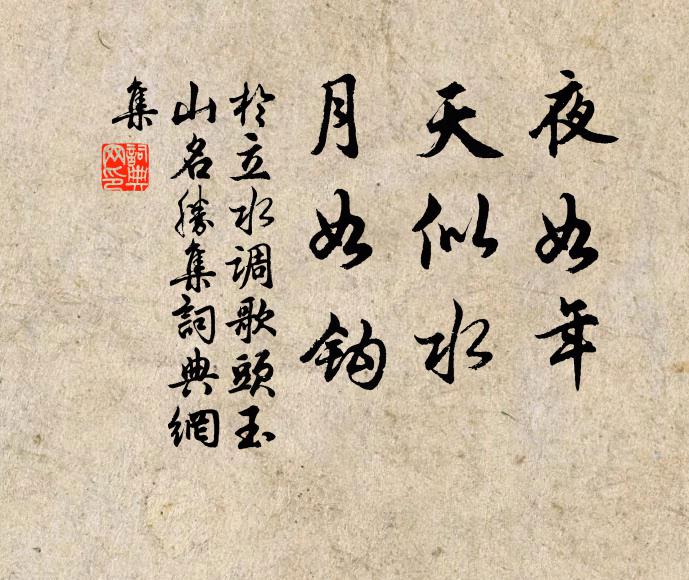 夜如年
天似水
月如鈎
於立水调歌頭玉
山名勝集詞典網
集
詞典
网印